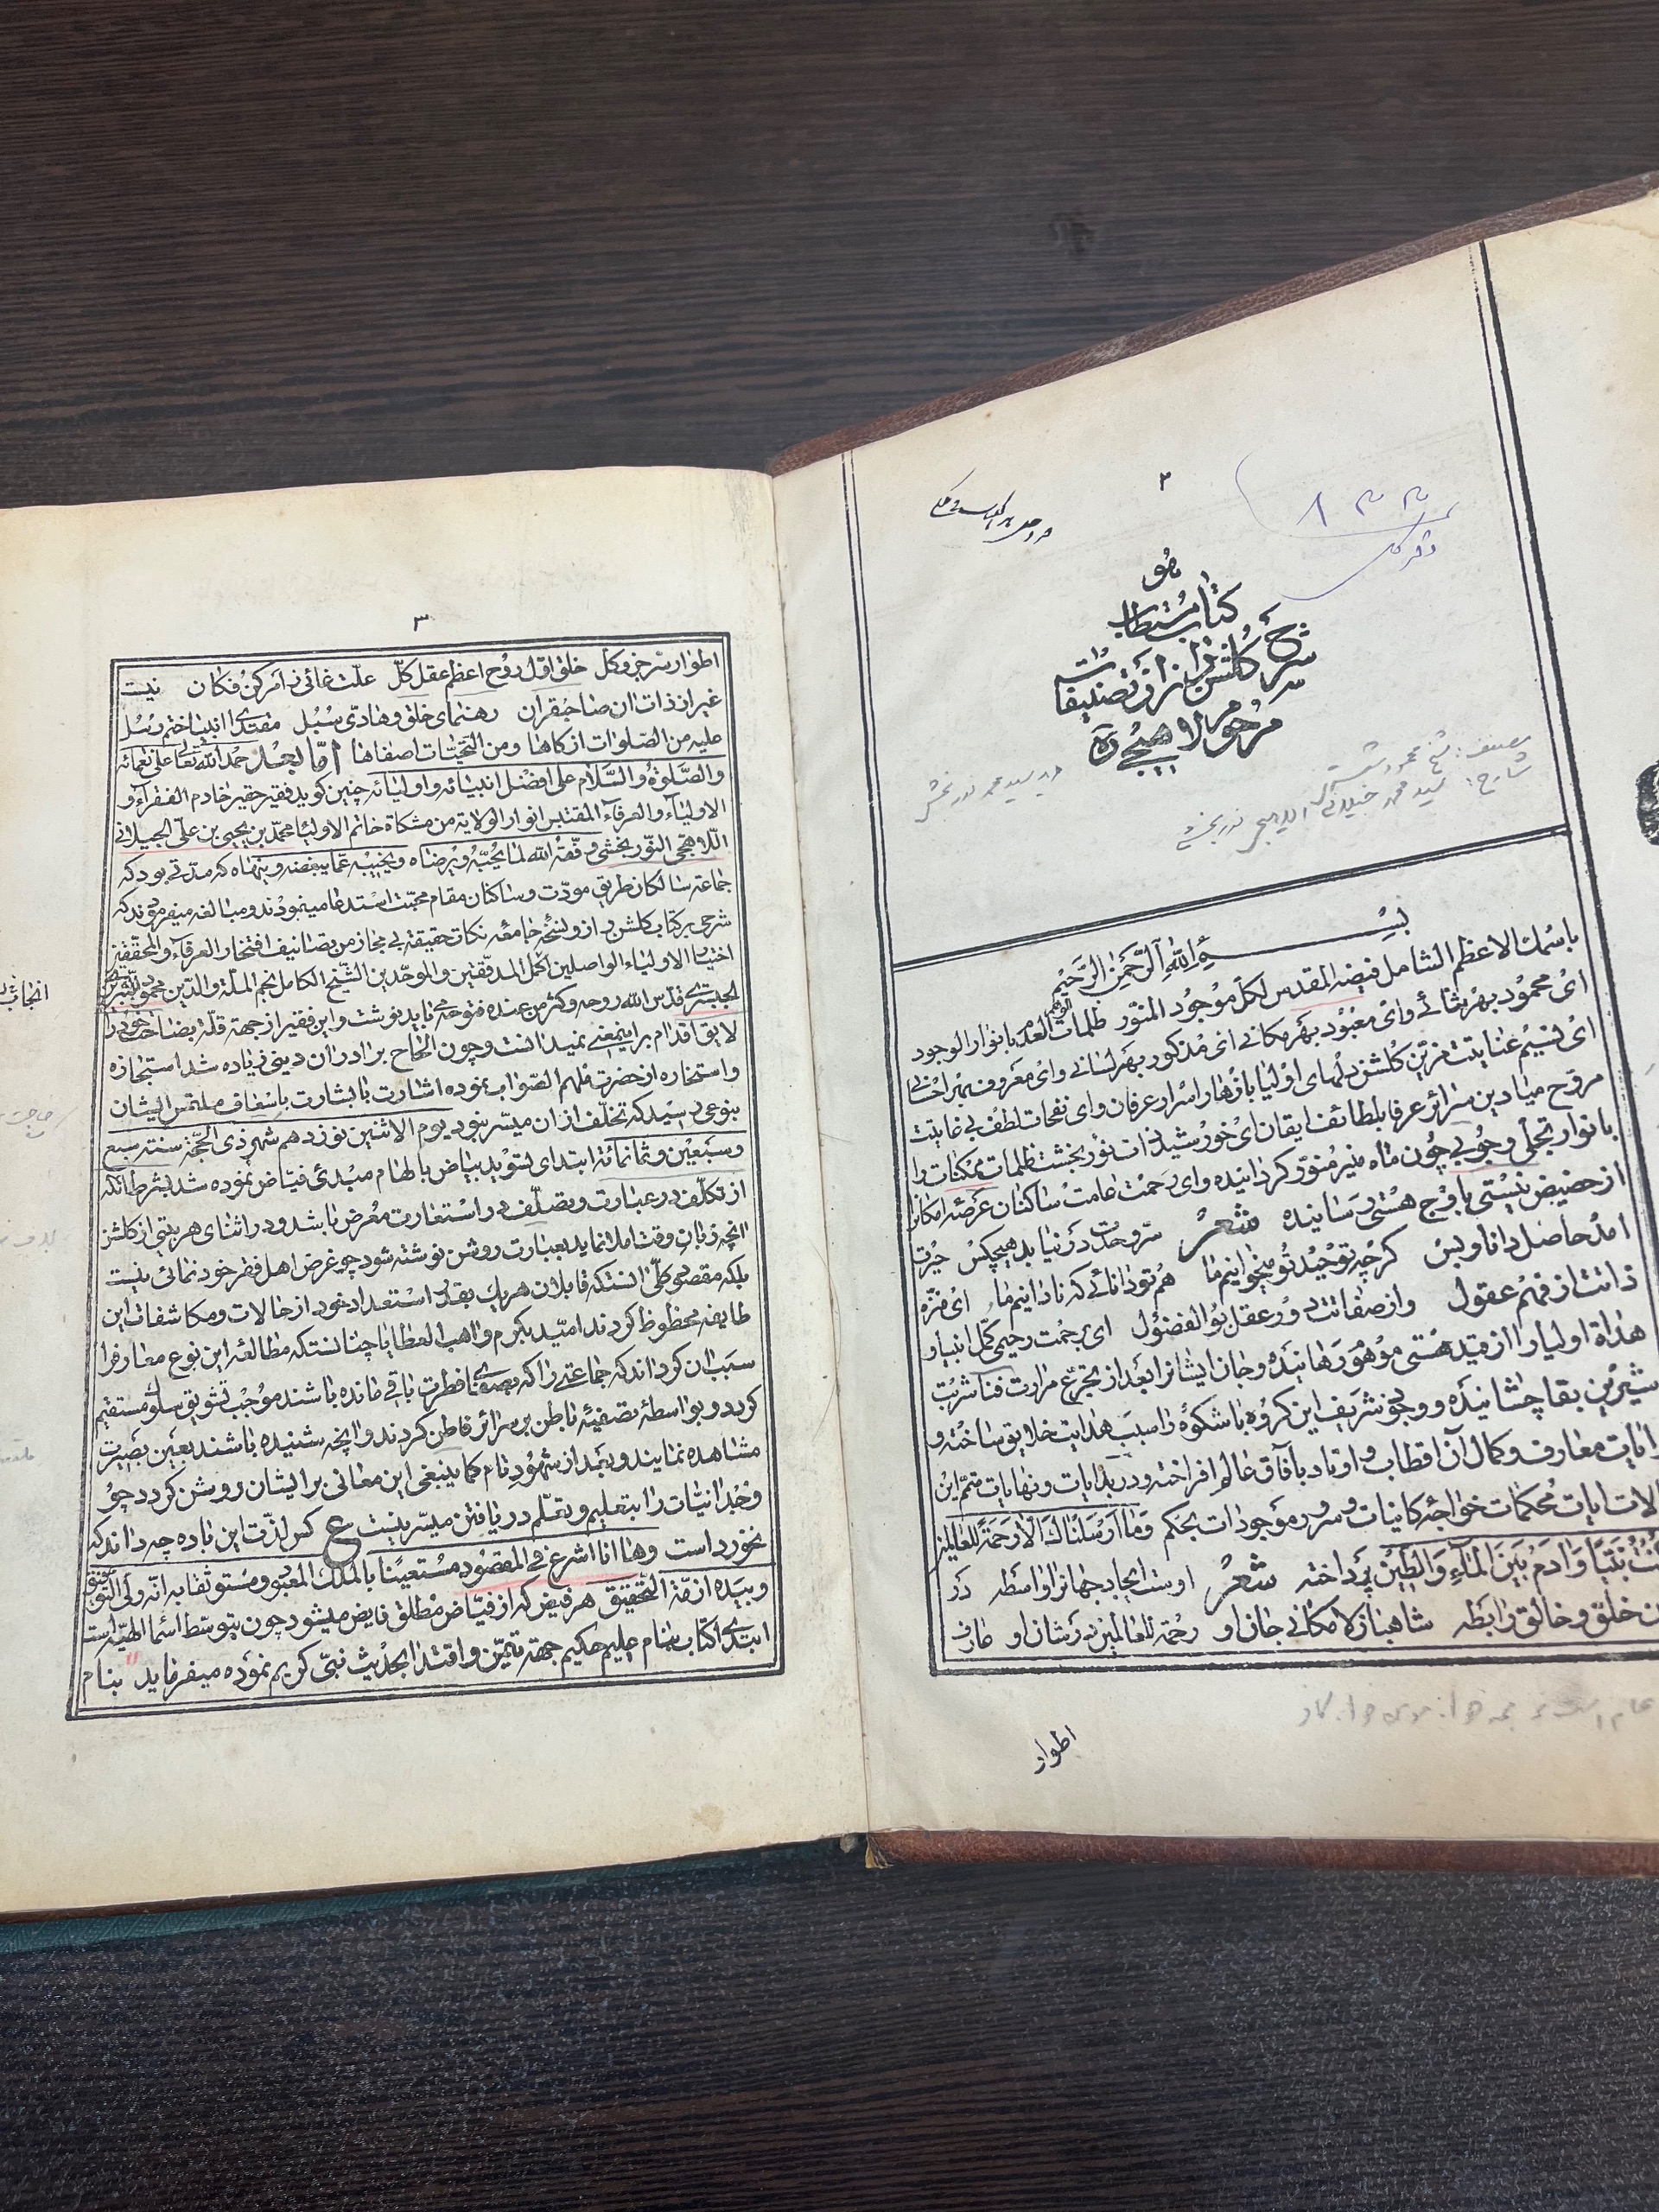 ۲
۸۳۲
هو
کتاب مستطاب
شرح گلشن راز از تصنیفات
مرحوم لاهیجی ره
مصنف: شیخ محمود شبستری
شارح: سید محمد جیلانی اللاهیجی نوربخشی
مرید سید محمد نوربخش
بسم الله الرحمن الرحیم
باسمك الاعظم الشامل فیضه المقدس لکل موجود المنور ظلمات العدم بانوار الوجود
ای محمود بهر شانی و ای معبود بهر مکانی ای مذکور بهر لسانی و ای معروف بهر احسانی
ای نسیم عنایتت مزین گلشن دلهای اولیا بازهار اسرار عرفان و ای نفحات لطف بی غایتت
مروح میادین سرائر عرفا بلطائف ایقان ای خورشید ذات نوربخشت ظلمات ممکنات را
بانوار تجلی وجوبی چون ماه منیر منور گردانیده و ای رحمت عامت ساکنان عرصه امکانرا
از حضیض نیستی باوج هستی رسانیده شعر سر وحدت در نیابد هیچکس حیرت
امد حاصل دانا و بس گرچه توحید تو میخوانیم ما هم تو دانائی که نادانیم ما ای منزه
ذاتت از فهم عقول و از صفاتت دور عقل بو الفضول ای برحمت رحیمی کمل انبیا و
هداة اولیا را از قید هستی موهوم رهانیده و جان ایشانرا بعد از تجرع مرارت فنا شربت
شیرین بقا چشانیده و وجود شریف این گروه با شکوه را سبب هدایت خلایق ساخته و
رایات معارف و کمال آن اقطاب و اوتاد بآفاق عالم افراخته و در بدایات و نهایات متمم این
الات ایات محکمات خواجه کاینات و سرور موجودات بحکم وما ارسلناك الا رحمة للعالمین
کنت نبیا وادم بین الماء والطین پرداخته شعر اوست ایجاد جهانرا واسطه در
ن خلق و خالق رابطه شاهباز لامکانی جان او رحمة للعالمین در شان او عارف
اطوار
۳
اطوار سر جزو و کل خلق اول روح اعظم عقل کل علت غائی ز امر کن فکان نیست
غیر از ذات ان صاحبقران رهنمای خلق و هادی سبل مقتدای انبیا ختم رسل
علیه من الصلوات ازکاها ومن التحیات اصفاها اما بعد حمد الله تعالی علی نعمائه
والصلوة والسلام علی افضل انبیائه و اولیائه چنین گوید فقیر حقیر خادم الفقراء و
الاولیاء والعرفاء المقتبس انوار الولایة من مشکاة خاتم الاولیا محمد بن یحیی بن علی الجیلانی
اللاهجی النوربخشی وفقه الله لما یحبه و یرضاه و یجنبه عما یبغضه و ینهاه که مدتی بود که
جماعه سالکان طریق مودت و ساکنان مقام محبت استدعا مینمودند و مبالغه میفرمودند که
شرحی بر کتاب گلشن راز و نسخه جامعه نکات حقیقه بی مجاز من تصانیف افتخار العرفاء والمحققین
اختیار الاولیاء الواصلین اکمل المدققین والموحدین الشیخ الکامل نجم الملة والدین محمود التبریزی
الجبستری قدس الله روحه وکثر من عنده فتوحه می باید نوشت و این فقیر از جهة قلة بضاعت خود را
لایق اقدام بر اینمعنی نمیدانست و چون الحاح برادران دینی زیاده شد استجازه
و استخاره از حضرت ملهم الصواب نموده اشارت با بشارت باسعاف ملتمس ایشان
بنوعی رسید که تخلف از ان میسر نبود یوم الاثنین نوزدهم شهر ذی الحجة سنة سبع
وسبعین وثمانمائة ابتدای تسوید بیاض بالهام مبدئ فیاض نموده شد بشرط آنکه
از تکلف در عبارت و تصلف در استعارت معرض باشد و در اثنای هر بیتی از گلشن
انچه زبان وقت املا نماید بعبارت روشن نوشته شود چو غرض اهل فقر خود نمائی نیست
بلکه مقصود کلی انستکه قابلان هریك بقدر استعداد خود از حالات و مکاشفات این
طایفه محظوظ گردند امید بکرم واهب العطایا چنانستکه مطالعه این نوع معارف را
سبب ان گرداند که جماعتی را که بصفای فطرت باقی مانده باشند موجب تشویق سلوك مستقیم
گردد و بواسطه تصفیه باطن بر سرائر فاطن گردند و انچه شنیده باشند بعین بصیرت
مشاهده نمایند و بعد از شهود تام کما ینبغی این معانی بر ایشان روشن گردد چو
وجدانیات را بتعلیم و تعلم دریافتن میسر نیست ع کس لذت این باده چه داند که
نخورد است وها انا اشرع فی المقصود مستعینا بالملك المعبود ومستوثقا به انه ولی التوفیق
وبیده ازمة التحقیق هر فیض که از فیاض مطلق فایض میشود چون بتوسط اسماء الهیه است
ابتدای کتاب بنام علیم حکیم جهة تیمن و اقتدا بحدیث نبی کریم نموده میفرماید بنام